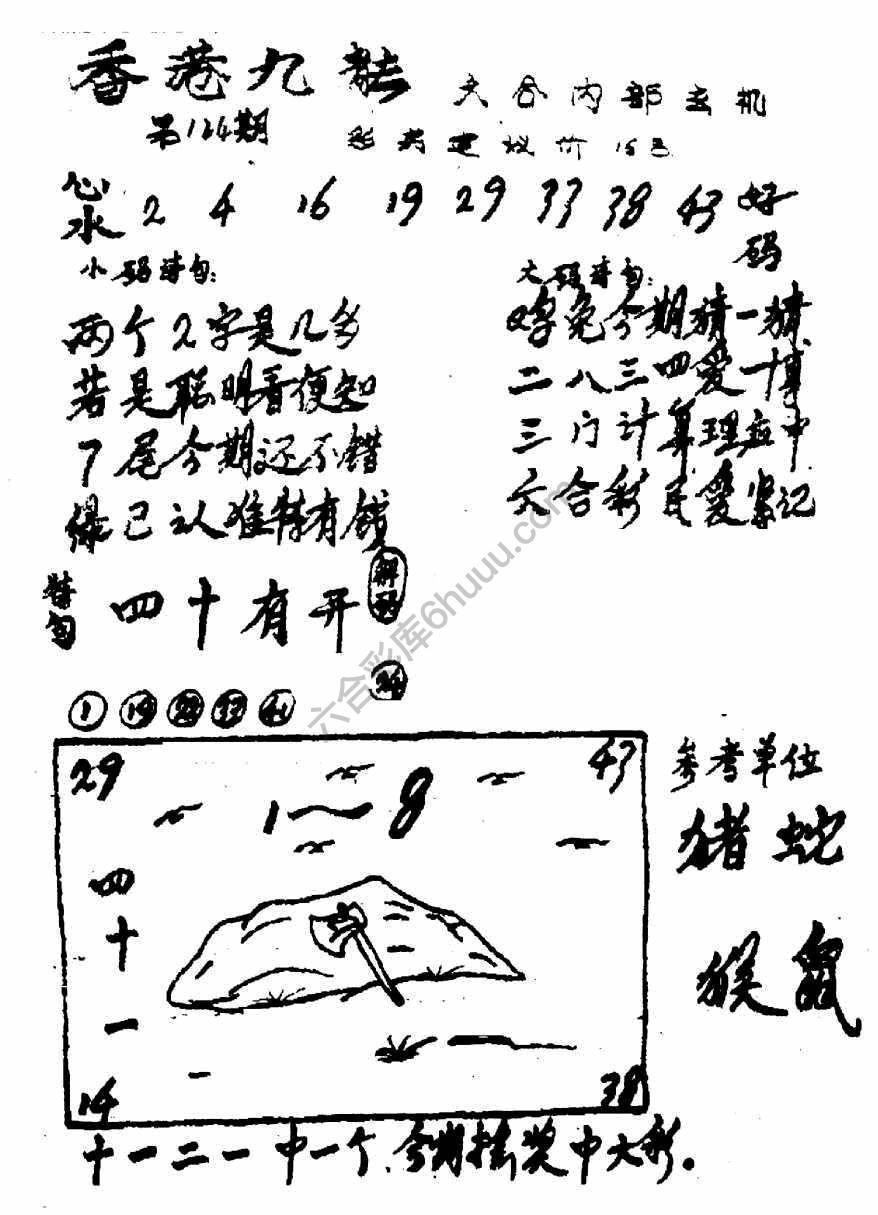 香港九龙 六合内部玄机
第124期
心水 2 4 16 19 29 33 38 43 好码
小码诗句: 大码诗句:
两个2字是几多
若是聪明看便知
7尾今期还不错
绿已认准特有钱
鸡兔今期猜一猜
二八三四爱十算
三门计算理应中
六合彩民爱紧记
特句 四十有开
解码
34
1 19
29 43
1～8
四十一
14 38
参考单位
猪蛇
猴鼠
十一二一中一个.今期挂奖中大彩。
六合彩库6huuu.com